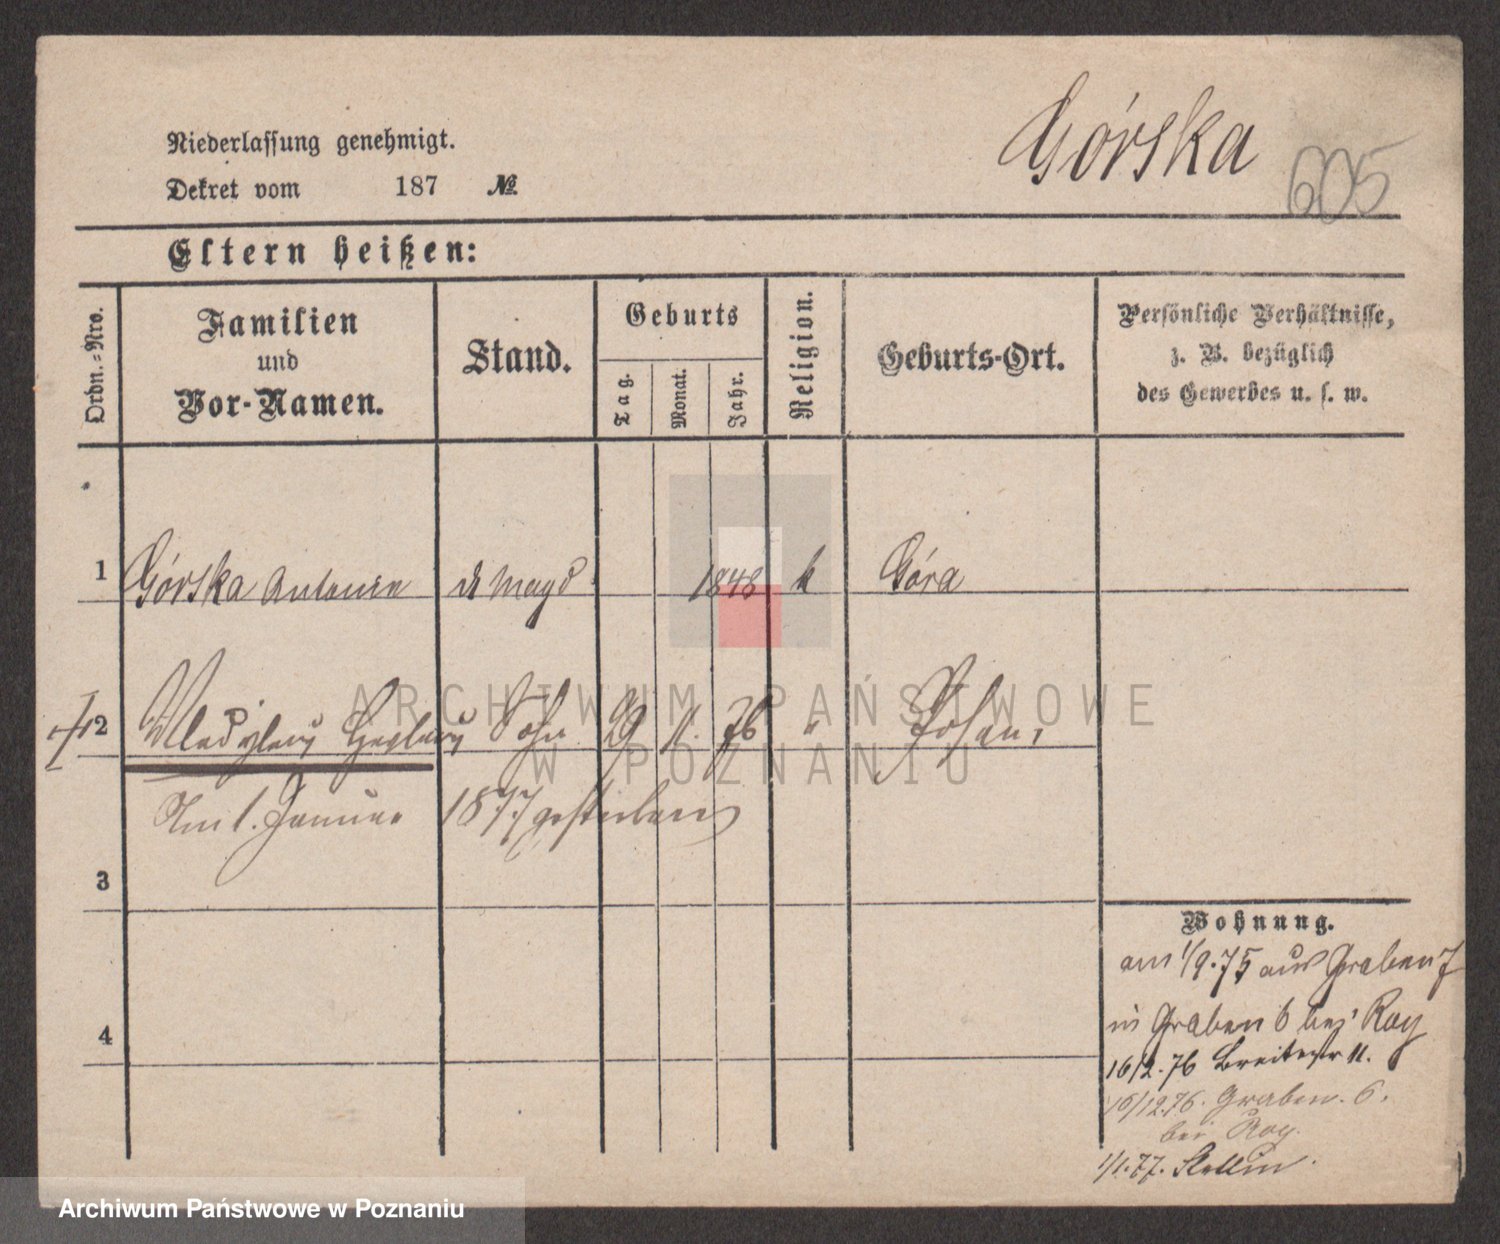 Górska
605
Niederlassung genehmigt.
Dekret vom 187 №
Eltern heißen:
Ordn.-Nro.
Familien
und
Vor-Namen.
Stand.
Geburts
Tag.
Monat.
Jahr.
Religion.
Geburts-Ort.
Persönliche Verhältnisse,
z. B. bezüglich
des Gewerbes u. s. w.
1 Górska Antonie d Magd 1848 k Góra
2 Sohn 29 11. 76 " Posen,
Am 1. Januar 1877 gestorben
3
4
Wohnung.
am 1/9.75 aus Graben 7
in Graben 6 bei Roy
16/2.76 Breitestr 11.
10/12.76. Graben. 6.
bei Roy.
1/1.77. Stettin.
ARCHIWUM PAŃSTWOWE
W POZNANIU
Archiwum Państwowe w Poznaniu